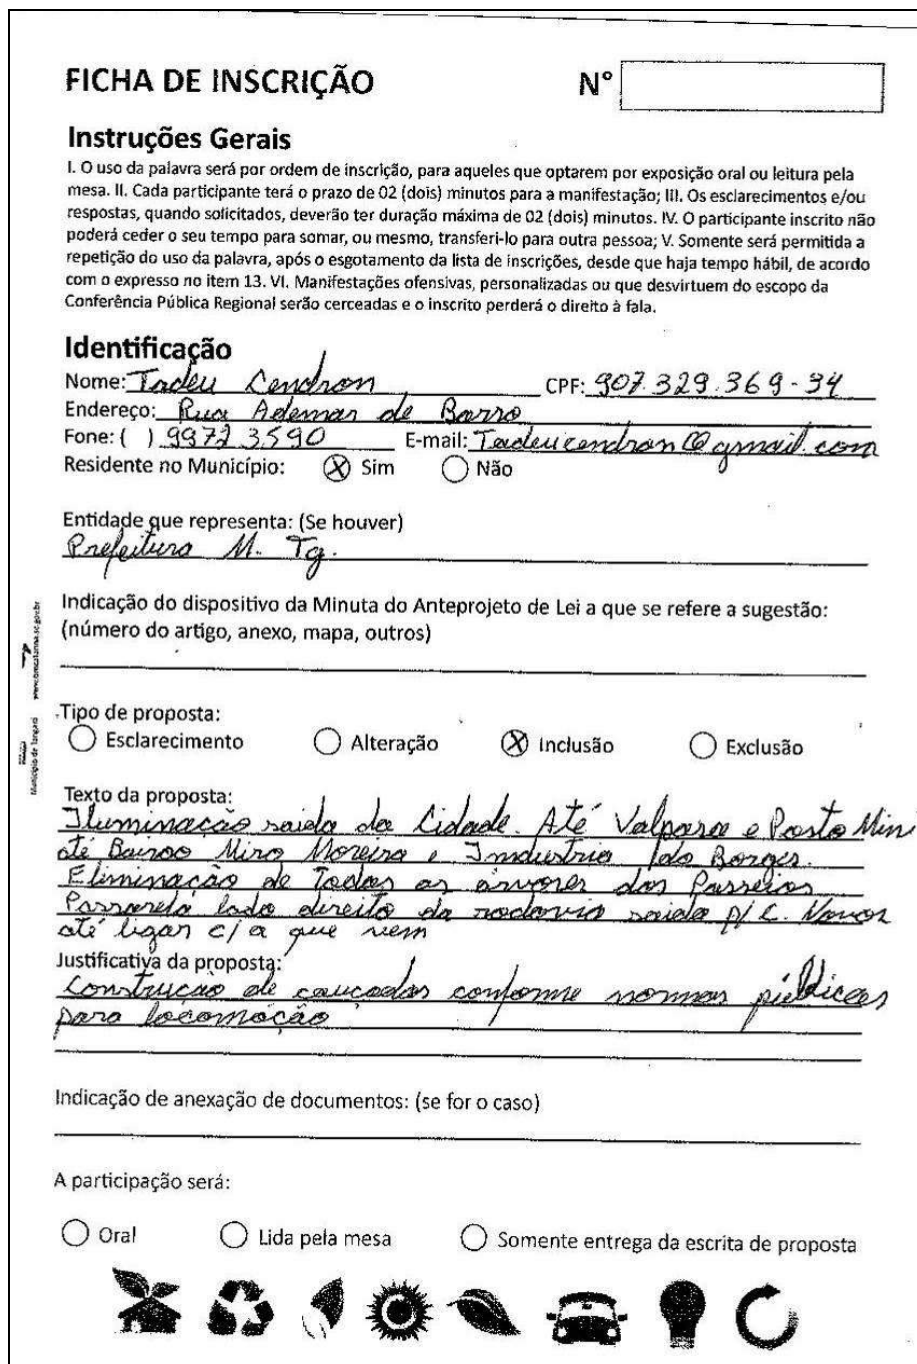 FICHA DE INSCRIÇÃO
Nº
Instruções Gerais
I. O uso da palavra será por ordem de inscrição, para aqueles que optarem por exposição oral ou leitura pela
mesa. II. Cada participante terá o prazo de 02 (dois) minutos para a manifestação; III. Os esclarecimentos e/ou
respostas, quando solicitados, deverão ter duração máxima de 02 (dois) minutos. IV. O participante inscrito não
poderá ceder o seu tempo para somar, ou mesmo, transferi-lo para outra pessoa; V. Somente será permitida a
repetição do uso da palavra, após o esgotamento da lista de inscrições, desde que haja tempo hábil, de acordo
com o expresso no item 13. VI. Manifestações ofensivas, personalizadas ou que desvirtuem do escopo da
Conferência Pública Regional serão cerceadas e o inscrito perderá o direito à fala.
Identificação
Nome: Tadeu Cendron CPF: 907.329.369-34
Endereço: Rua Ademar de Barro
Fone: ( ) 9977 3590 E-mail: Tadeucendron@gmail.com
Residente no Município: (X) Sim Não
Entidade que representa: (Se houver)
Prefeitura M. Tg.
Indicação do dispositivo da Minuta do Anteprojeto de Lei a que se refere a sugestão:
(número do artigo, anexo, mapa, outros)
Município de Tangará
Tipo de proposta:
Esclarecimento Alteração (X) Inclusão Exclusão
Texto da proposta:
Iluminação saida da Cidade. Até Valpara e Posto Mini
até Bairro Miro Moreira e Industria Borges.
Eliminação de Todas as árvores dos Passeios
Passarela lado direito da rodovia saida p/ C. Novos
até ligar c/ a que vem
Justificativa da proposta:
Construção de caucadas conforme normas públicas
para locomoção
Indicação de anexação de documentos: (se for o caso)
A participação será:
Oral Lida pela mesa Somente entrega da escrita de proposta